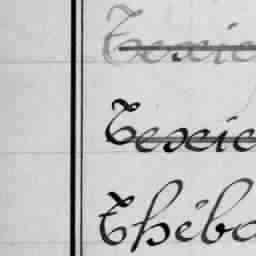 Texie
Texie
Thébo